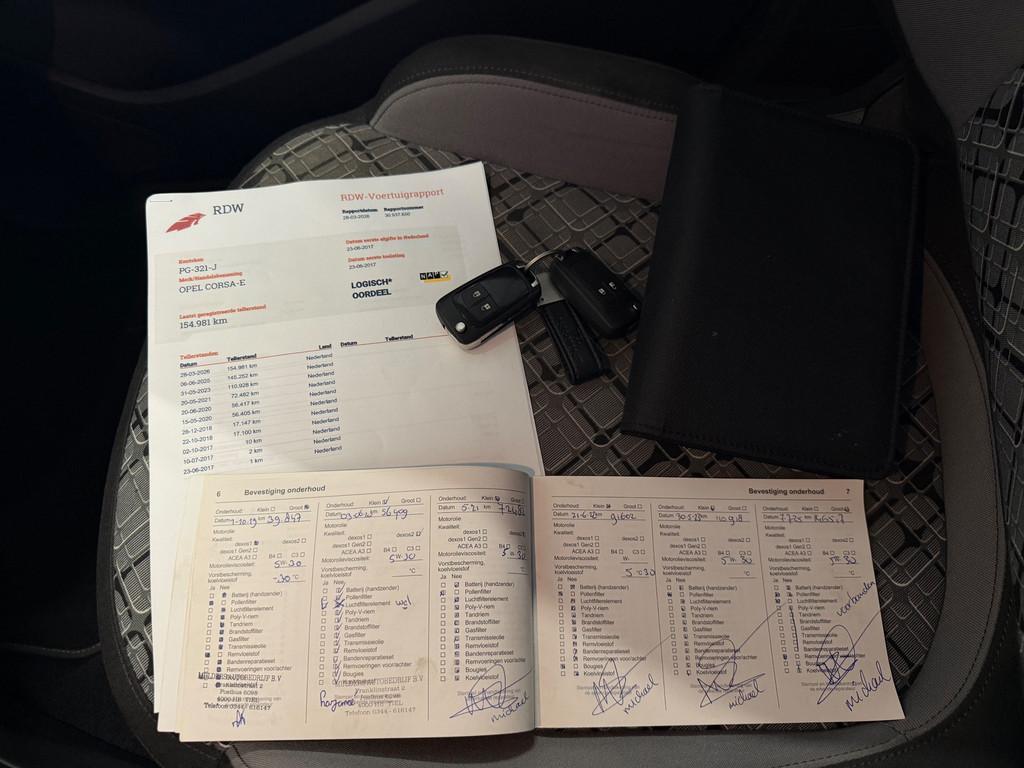 RDW
RDW-Voertuigrapport
Rapportdatum Rapportnummer
28-03-2026
Kenteken
PG-321-J
Merk/Handelsbenaming
OPEL CORSA-E
Datum eerste afgifte in Nederland
23-06-2017
Datum eerste toelating
23-06-2017
LOGISCH*
OORDEEL
NAP
Laatst geregistreerde tellerstand
154.981 km
Tellerstanden
Datum Tellerstand Land Datum Tellerstand
28-03-2026 154.981 km Nederland
06-06-2025 145.252 km Nederland
31-05-2023 110.928 km Nederland
20-05-2021 72.482 km Nederland
20-06-2020 56.417 km Nederland
15-05-2020 56.405 km Nederland
28-12-2018 17.147 km Nederland
22-10-2018 17.100 km Nederland
02-10-2017 10 km Nederland
10-07-2017 2 km Nederland
23-06-2017 1 km
6 Bevestiging onderhoud
Onderhoud: Klein Groot
Datum 1-10-19 km 39.847
Motorolie
Kwaliteit:
dexos1 dexos2
dexos1 Gen2
ACEA A3 B4 C3
Motorolieviscositeit: 5W-30
Vorstbescherming,
koelvloeistof -30 °C
Ja Nee
Batterij (handzender)
Pollenfilter
Luchtfilterelement
Poly-V-riem
Tandriem
Brandstoffilter
Gasfilter
Transmissieolie
Remvloeistof
Bandenreparatieset
Remvoeringen voor/achter
Bougies
Franklinstraat 2
Postbus 6098
4000 HB TIEL
Telefoon 0344 - 616147
Onderhoud: Klein Groot
Datum km 56409
Motorolie
Kwaliteit:
dexos1 dexos2
dexos1 Gen2
ACEA A3 B4 C3
Motorolieviscositeit: 5W30
Vorstbescherming,
koelvloeistof °C
Ja Nee
Batterij (handzender)
Pollenfilter
Luchtfilterelement wel
Poly-V-riem
Tandriem
Brandstoffilter
Gasfilter
Transmissieolie
Remvloeistof
Bandenreparatieset
Remvoeringen voor/achter
Bougies
Franklinstraat 2
Postbus 6098
4000 HB TIEL
Telefoon 0344 - 616147
Onderhoud: Klein Groot
Datum 5-21 km 72482
Motorolie
Kwaliteit:
dexos1 dexos2
dexos1 Gen2
ACEA A3 B4 C3
Motorolieviscositeit: 5W30
Vorstbescherming,
koelvloeistof °C
Ja Nee
Batterij (handzender)
Pollenfilter
Luchtfilterelement
Poly-V-riem
Tandriem
Brandstoffilter
Gasfilter
Transmissieolie
Remvloeistof
Bandenreparatieset
Remvoeringen voor/achter
Bougies
Koelvloeistof
michael
Bevestiging onderhoud 7
Onderhoud: Klein Groot
Datum 21-6-22 km 91602
Motorolie
Kwaliteit:
dexos1 dexos2
dexos1 Gen2
ACEA A3 B4 C3
Motorolieviscositeit: W-
Vorstbescherming,
koelvloeistof
Ja Nee
Batterij (handzender)
Pollenfilter
Luchtfilterelement
Poly-V-riem
Tandriem
Brandstoffilter
Gasfilter
Transmissieolie
Remvloeistof
Bandenreparatieset
Remvoeringen voor/achter
Bougies
Koelvloeistof
michael
Onderhoud: Klein Groot
Datum 30-5-23 km 110918
Motorolie
Kwaliteit:
dexos1 dexos2
dexos1 Gen2
ACEA A3 B4 C3
Motorolieviscositeit: 5W-30
Vorstbescherming,
koelvloeistof °C
Ja Nee
Batterij (handzender)
Pollenfilter
Luchtfilterelement
Poly-V-riem
Tandriem
Brandstoffilter
Gasfilter
Transmissieolie
Remvloeistof
Bandenreparatieset
Remvoeringen voor/achter
Bougies
Koelvloeistof
michael
Onderhoud: Klein Groot
Datum km
Motorolie
Kwaliteit:
dexos1 dexos2
dexos1 Gen2
ACEA A3 B4 C3
Motorolieviscositeit: 5W-30
Vorstbescherming,
koelvloeistof °C
Ja Nee
Batterij (handzender)
Pollenfilter
Luchtfilterelement
Poly-V-riem
Tandriem
Brandstoffilter
Gasfilter
Transmissieolie
Remvloeistof
Bandenreparatieset
Remvoeringen voor/achter
Bougies
Koelvloeistof
michael